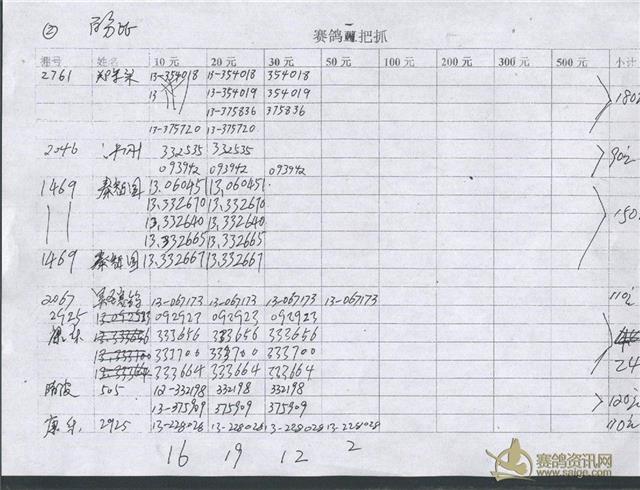 ② 
赛鸽 把抓
棚号 姓名 10元 20元 30元 50元 100元 200元 300元 500元 小计
2761 13-354018 13-354018 354018
13 13-354019 354019 180元
13-375836 375836
13-375720 13-375720
2046 332535 332535
093942 093942 093942 90元
1469 秦智国 13.060451 13.060451
13.332670 13.332670
13.332640 13.332640 150
13.332665 13.332665
1469 秦智国 13.332667 13.332667
2067 13-067173 13-067173 13-067173 13-067173 110元
2925 092923 092923 092923
康乐 333656 333656 333656
333700 333700 333700 24
333664 333664 333664
505 12-332198 332198 332198
13-375909 375909 375909 120元
康乐 2925 13-228028 13-228028 13-228028 13-228028 110元
16 19 12 2
赛鸽资讯网
www.saige.com